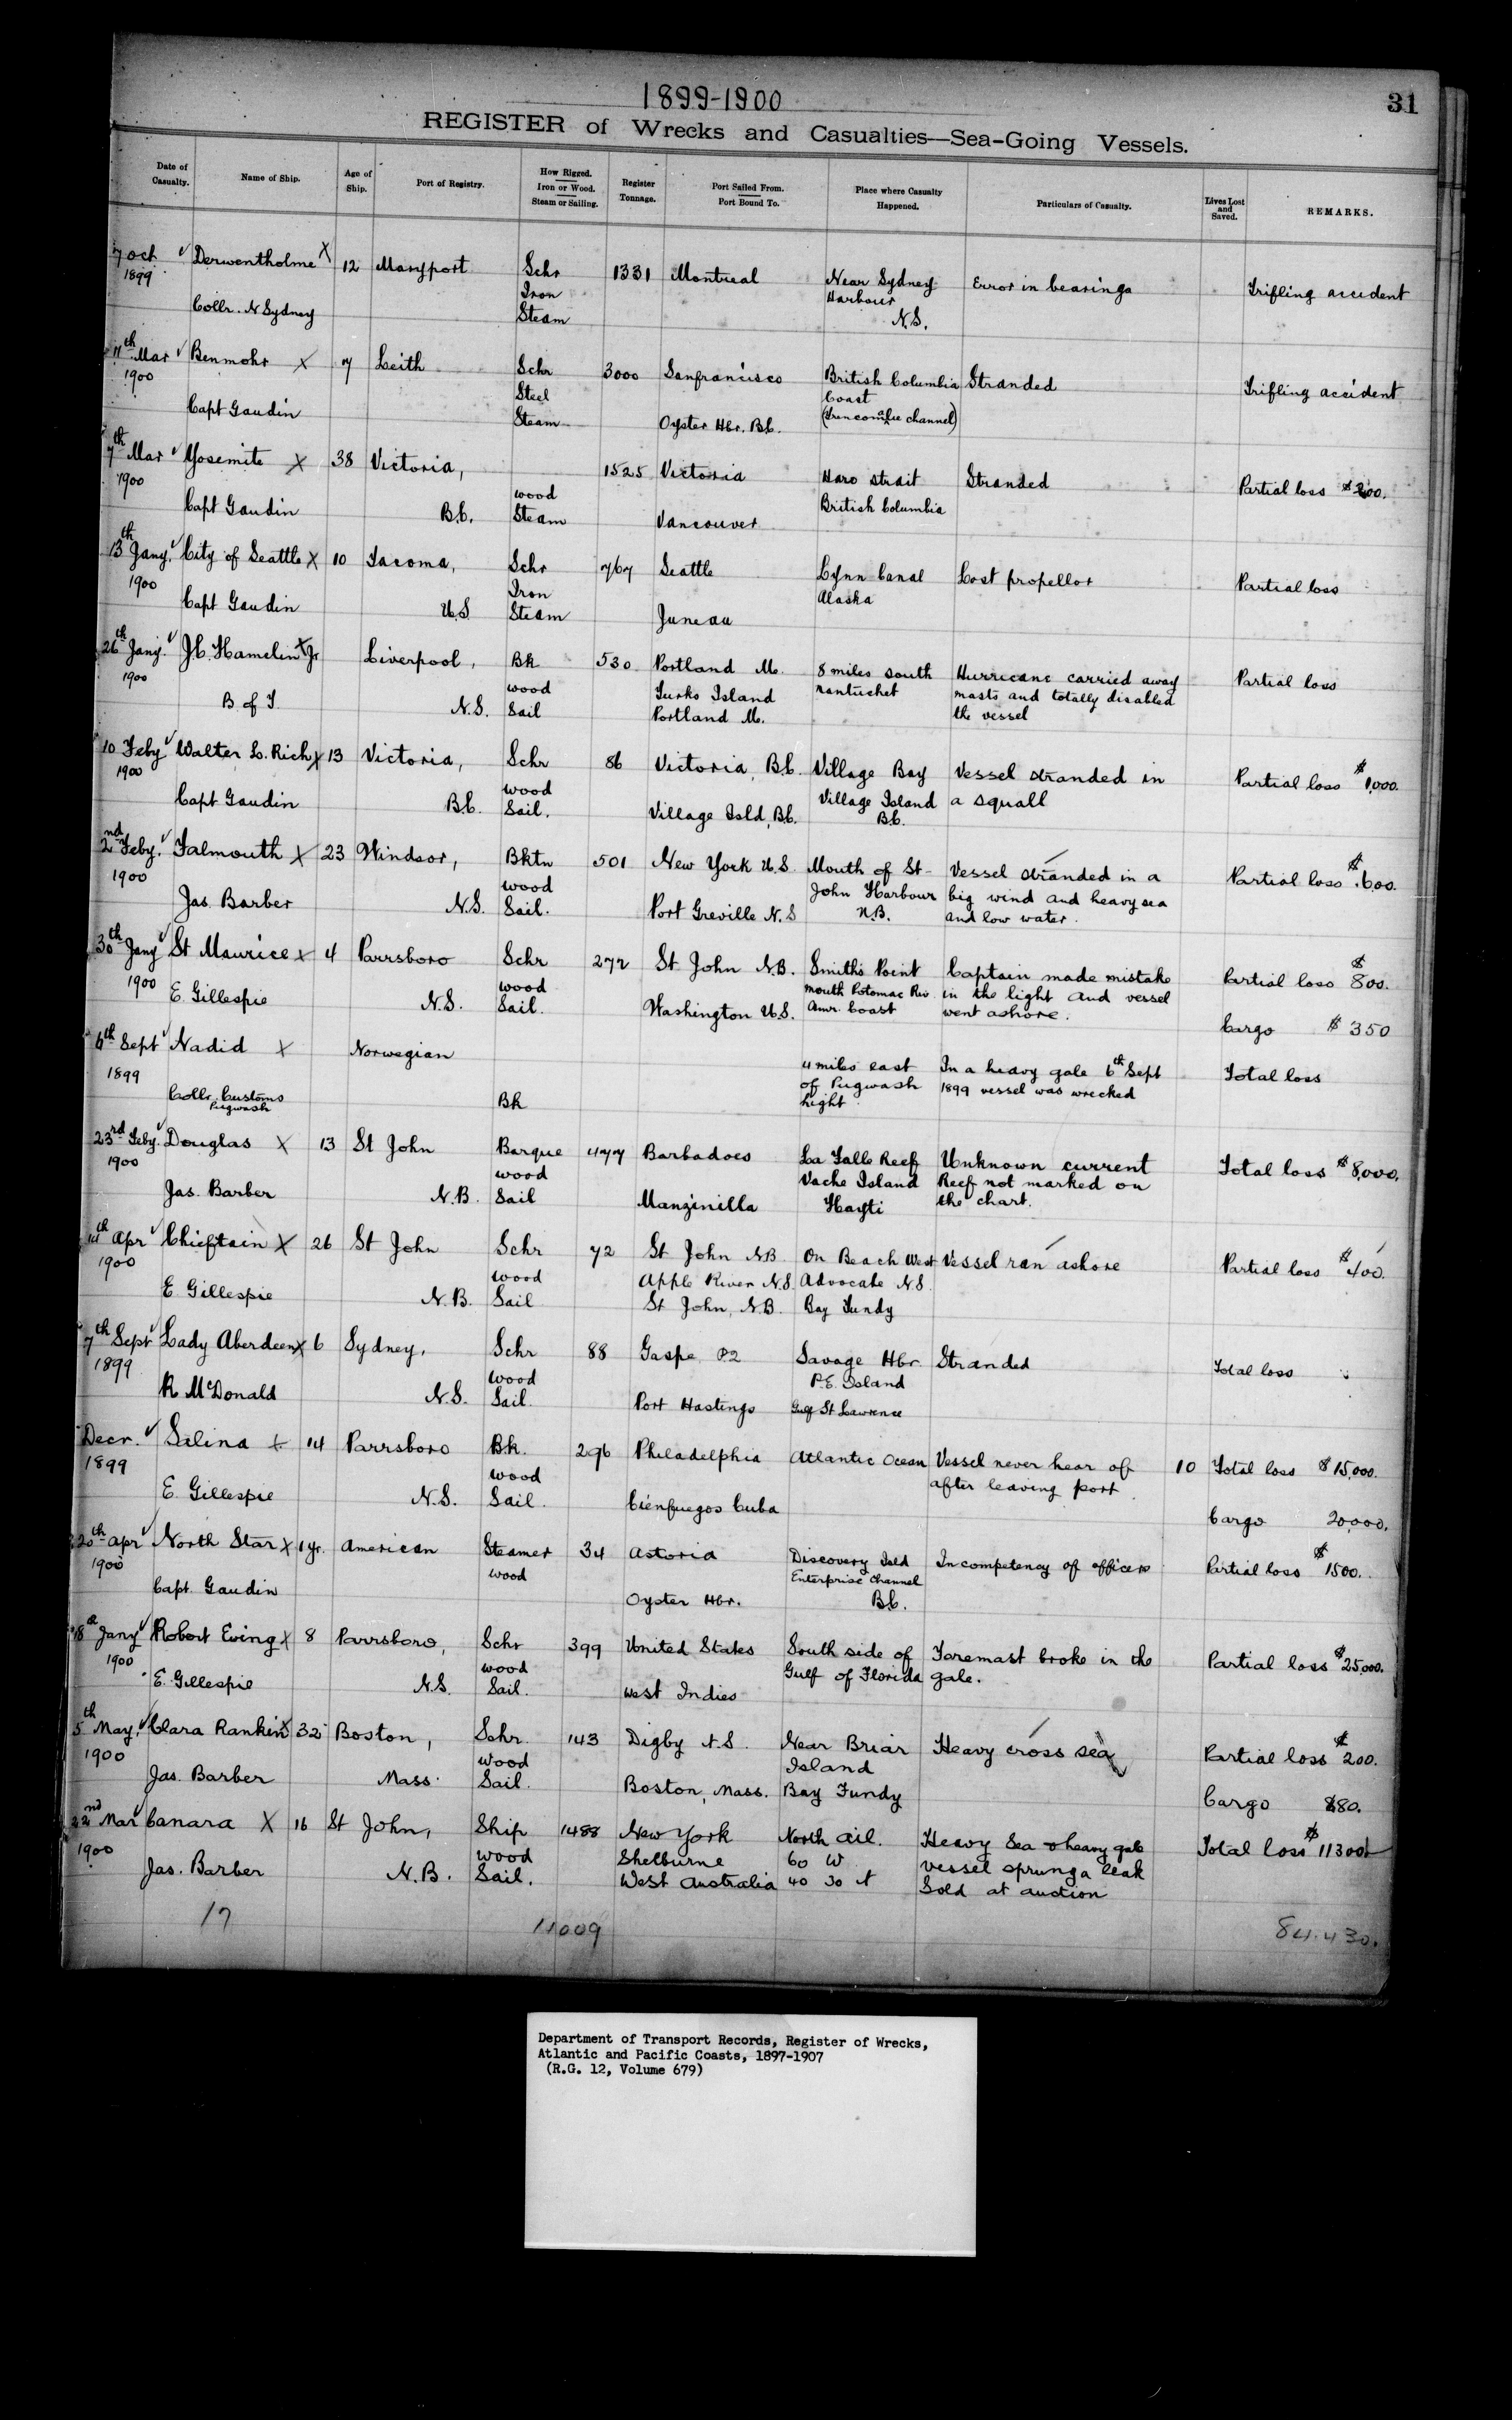 1899-1900
31
REGISTER of Wrecks and Casualties—Sea-Going Vessels.
Date of Casualty. Name of Ship. Age of Ship. Port of Registry. How Rigged. Iron or Wood. Steam or Sailing. Register Tonnage. Port Sailed From. Port Bound To. Place where Casualty Happened. Particulars of Casualty. Lives Lost and Saved. REMARKS.
7 Oct Derwentholme X 12 Maryport Schr 1331 Montreal Near Sydney Error in bearings Trifling accident
1899 Iron Harbour
Collr. N Sydney Steam N.S.
11th Mar Benmohr X 7 Leith Schr 3000 Sanfrancisco British Columbia Stranded Trifling accident
1900 Steel Coast
Capt Gaudin Steam Oyster Hbr. B.C. channel)
7th Mar Yosemite X 38 Victoria, 1525 Victoria Haro Strait Stranded Partial loss
1900 wood British Columbia
Capt Gaudin B.C. Steam Vancouver
13th Jany. City of Seattle X 10 Tacoma, Schr 767 Seattle Lynn Canal Lost propellor Partial loss
1900 Iron Alaska
Capt Gaudin U.S Steam Juneau
26th Jany. J.C. Hamelin Jr X Liverpool, Bk 530 Portland M. 8 miles south Hurricane carried away Partial loss
1900 wood Turks Island nantucket masts and totally disabled
B. of T. N.S. Sail Portland M. the vessel
10 Feby Walter L. Rich X 13 Victoria, Schr 86 Victoria, B.C. Village Bay Vessel stranded in Partial loss $1,000.
1900 wood Village Island a squall
Capt Gaudin B.C. Sail. Village Isld, B.C. B.C.
2nd Feby. Falmouth X 23 Windsor, Bktn 501 New York U.S. Mouth of St- Vessel stranded in a Partial loss $600.
1900 wood John Harbour big wind and heavy sea
Jas. Barber N.S. Sail. Port Greville N.S N.B. and low water.
30th Jany St Maurice X 4 Parrsboro Schr 272 St John N.B. Smith's Point Captain made mistake Partial loss $800.
1900 wood mouth Potomac Riv in the light and vessel
E. Gillespie N.S. Sail. Washington U.S. Amr. Coast went ashore.
Cargo $350
6th Sept Nadid X Norwegian 4 miles east In a heavy gale 6th Sept Total loss
1899 of Pugwash 1899 vessel was wrecked
Collr. Customs Pugwash Bk light
23rd Feby. Douglas X 13 St John Barque 477 Barbadoes La Falle Reef Unknown current Total loss $8,000.
1900 wood Vache Island Reef not marked on
Jas. Barber N.B. Sail Manzinilla Hayti the chart.
Apr Chieftain X 26 St John Schr 72 St John N.B On Beach West Vessel ran ashore Partial loss $400.
1900 wood Apple River N.S. Advocate N.S
E Gillespie N.B. Sail St John, N.B. Bay Fundy
7th Sept Lady Aberdeen X 6 Sydney, Schr 88 Gaspe P2 Savage Hbr Stranded Total loss
1899 wood P.E. Island
R McDonald N.S. Sail. Port Hastings Gulf St Lawrence
Decr. Salina X 14 Parrsboro Bk. 296 Philadelphia Atlantic Ocean Vessel never hear of 10 Total loss $15,000.
1899 wood after leaving port
E. Gillespie N.S. Sail. Ciénfuegos Cuba
Cargo 20,000.
20th Apr North Star X 1 yr. American Steamer 34 Astoria Discovery Isld Incompetency of officers Partial loss $1500.
1900 wood Enterprise Channel
Capt. Gaudin Oyster Hbr. B.C.
Jany Robert Ewing X 8 Parrsboro, Schr 399 United States South side of Foremast broke in the Partial loss $25,000.
1900 wood Gulf of Florida gale.
E. Gillespie N.S. Sail. West Indies
5th May. Clara Rankin X 32 Boston, Schr. 143 Digby N.S. Near Briar Heavy cross sea Partial loss $200.
1900 wood Island
Jas. Barber Mass. Sail. Boston, Mass. Bay Fundy
Cargo 880.
22nd Mar Canara X 16 St John, Ship 1488 New York North ail. Heavy Sea & heavy gale Total loss $11300
1900 wood Shelburne 60 W vessel sprung a leak
Jas. Barber N.B. Sail. West Australia 40 30 N Sold at auction
17 11009 84.430.
Department of Transport Records, Register of Wrecks,
Atlantic and Pacific Coasts, 1897-1907
(R.G. 12, Volume 679)